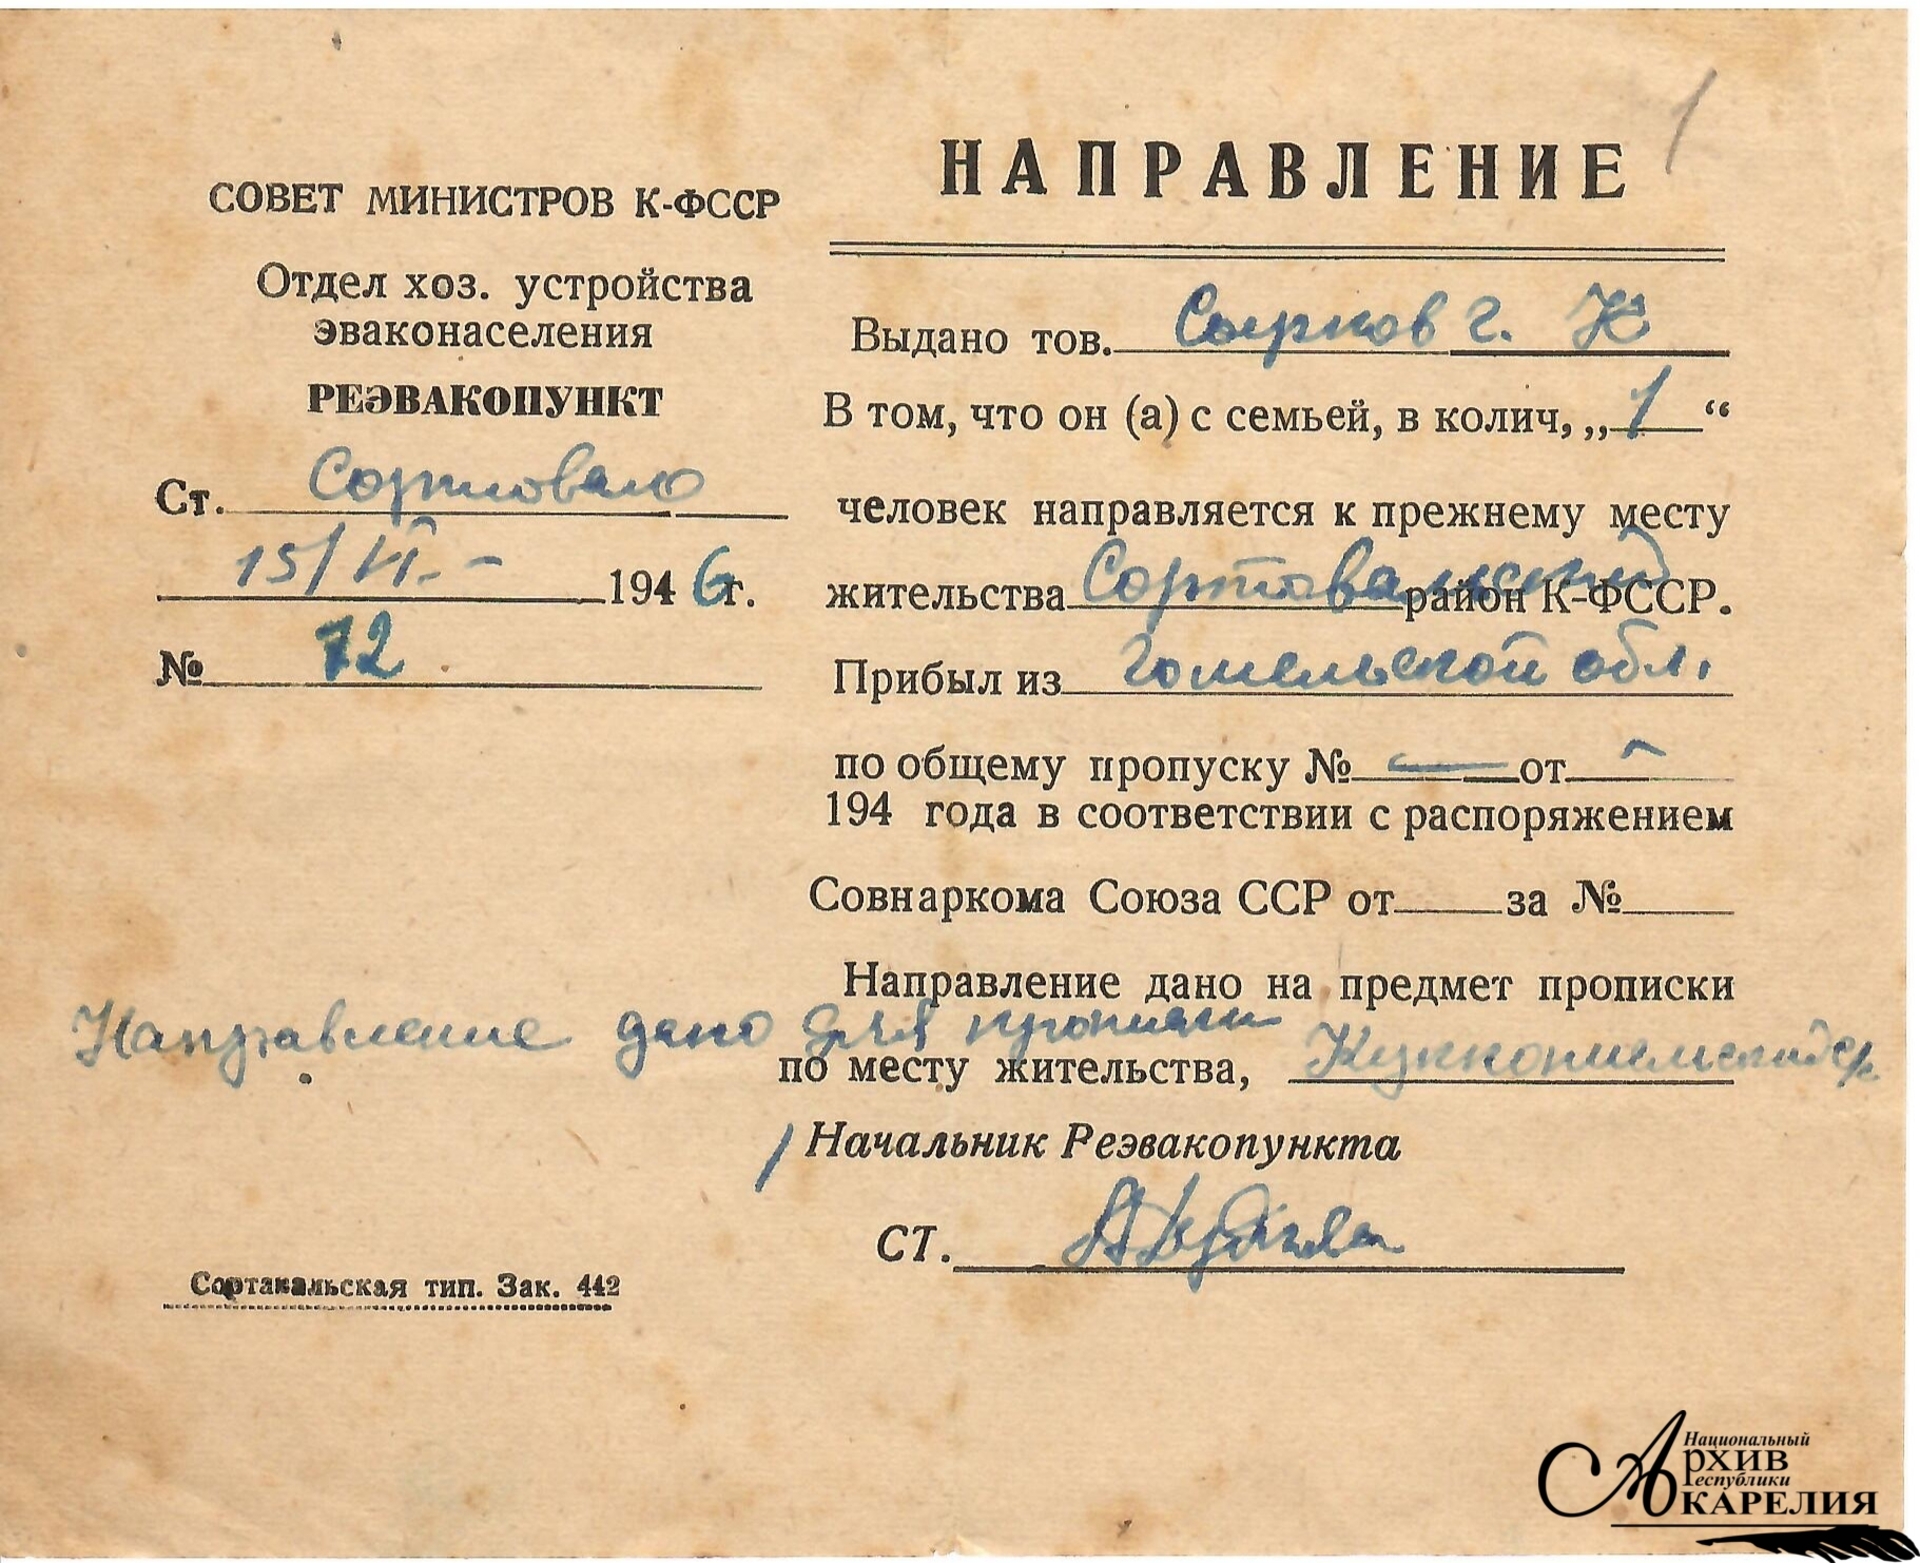 1
НАПРАВЛЕНИЕ
СОВЕТ МИНИСТРОВ К-ФССР
Отдел хоз. устройства
эваконаселения
РЕЭВАКОПУНКТ
Ст. Сортовало
15/VI.- 1946г.
№ 72
Выдано тов. г. К
В том, что он (а) с семьей, в колич, „1“
человек направляется к прежнему месту
жительства Сортовальский район К-ФССР.
Прибыл из Гомельской обл.
по общему пропуску № — от -
194 года в соответствии с распоряжением
Совнаркома Союза ССР от за №
Направление дано на предмет прописки
Направление дано для прописки
по месту жительства,
Начальник Реэвакопункта
СТ.
Сортавальская тип. Зак. 442
Национальный
Архив
Республики
КАРЕЛИЯ